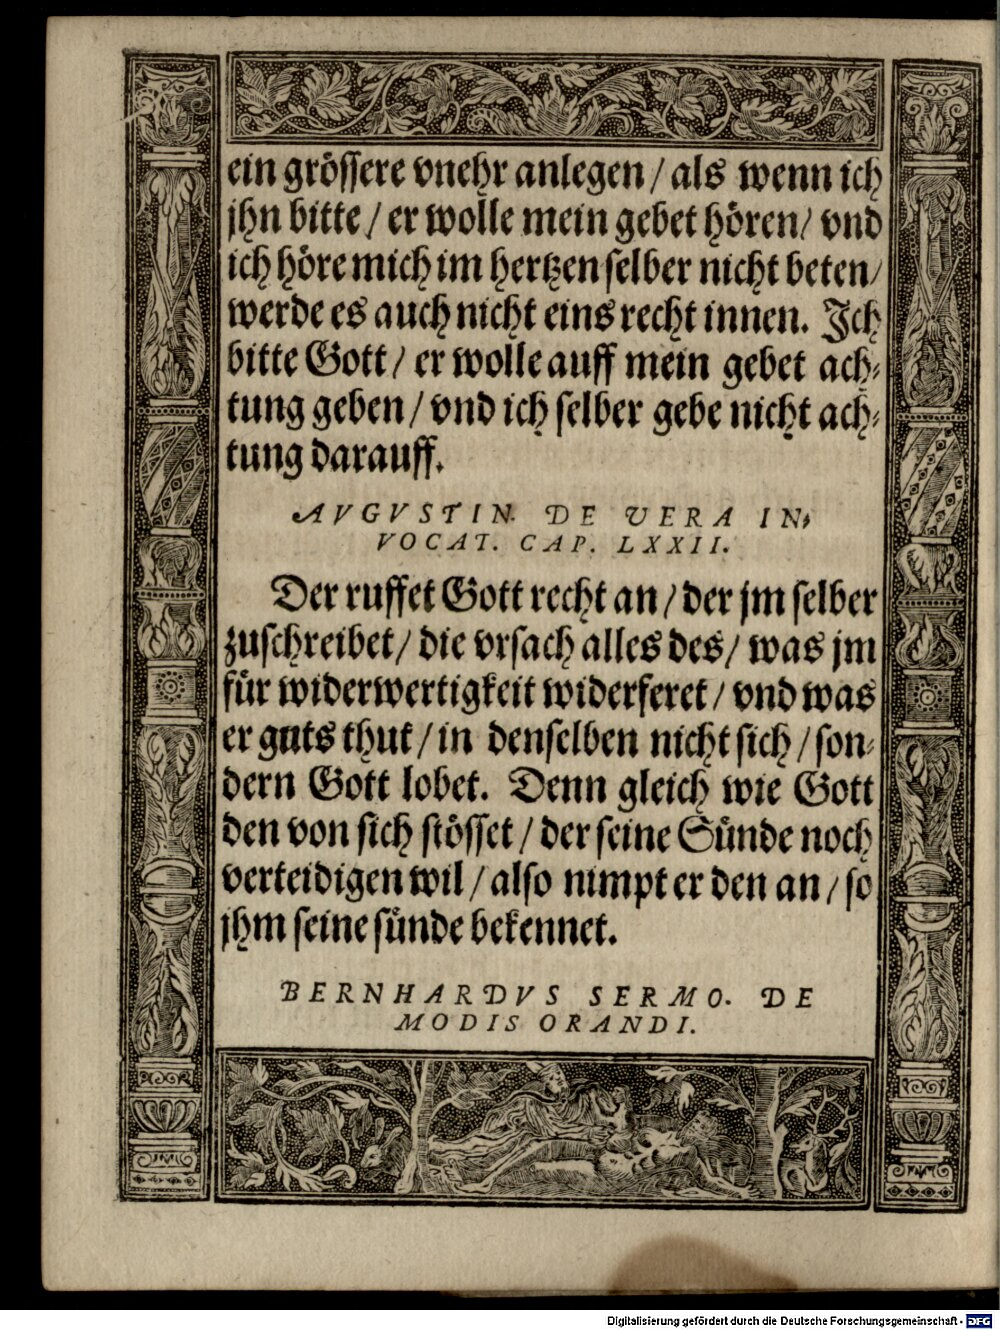 ein grössere vnehr anlegen / als wenn ich
jhn bitte / er wölle mein gebet hören / vnd
ich höre mich im hertzen selber nicht beten /
werde es auch nicht eins recht innen. Ich
bitte Gott / er wolle auff mein gebet ach⸗
tung geben / vnd ich selber gebe nicht ach⸗
tung darauff.
AVGVSTIN. DE VERA IN⸗
VOCAT. CAP. LXXII.
Der ruffet Gott recht an / der jm selber
zuschreibet / die vrsach alles des / was jm
für widerwertigkeit widerferet / vnd was
er guts thut / in denselben nicht sich / son⸗
dern Gott lobet. Denn gleich wie Gott
den von sich stösset / der seine Sünde noch
verteidigen wil / also nimpt er den an / so
jhm seine sünde bekennet.
BERNHARDVS SERMO. DE
MODIS ORANDI.
Digitalisierung gefördert durch die Deutsche Forschungsgemeinschaft - DFG